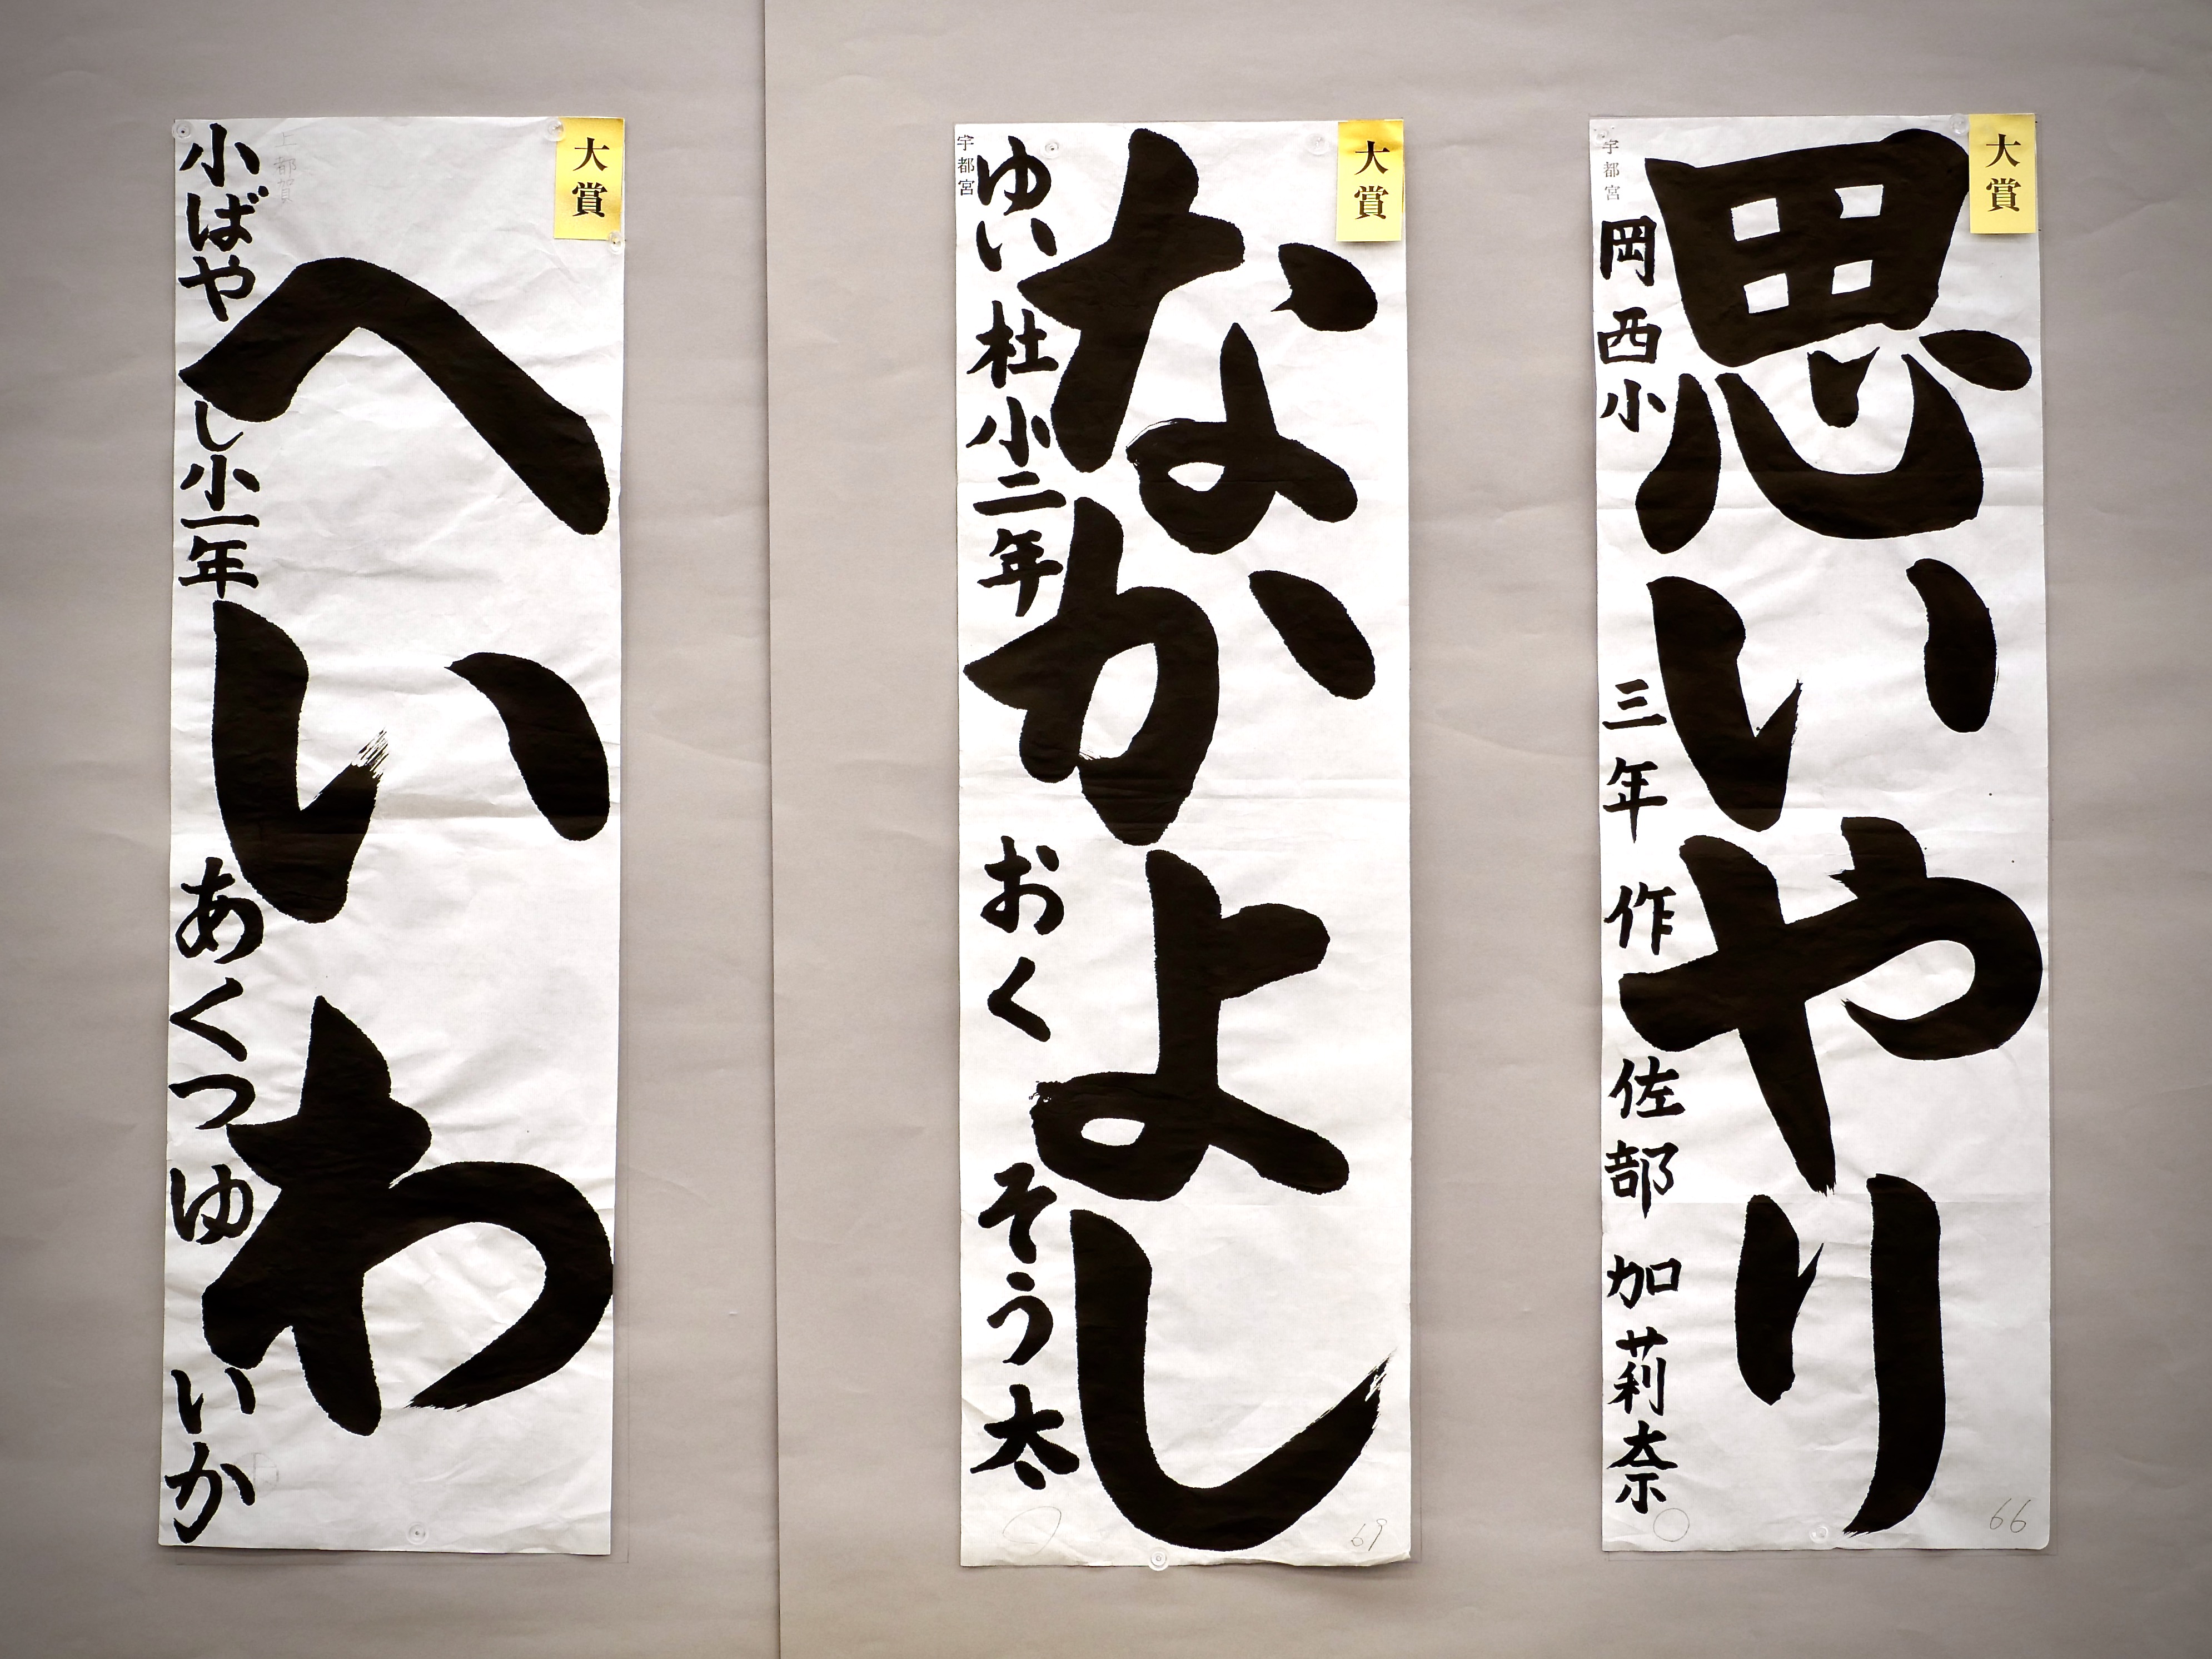 大賞
思いやり
宇都宮
岡西小 三年 作佐部 加莉奈
66
大賞
なかよし
宇都宮
ゆい杜小二年 おく そう太
69
大賞
へいわ
上都賀
小ばやし小一年 あくつ ゆいか